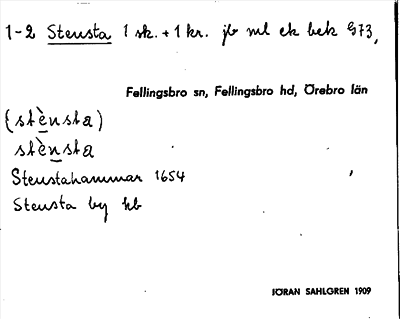 1-2 Stensta 1 sk. + 1 kr. jb ml ek bek 573,
Fellingsbro sn, Fellingsbro hd, Örebro län
(stènsta)
stènsta
Stenstahammar 1654
Stensta by kb
JÖRAN SAHLGREN 1909